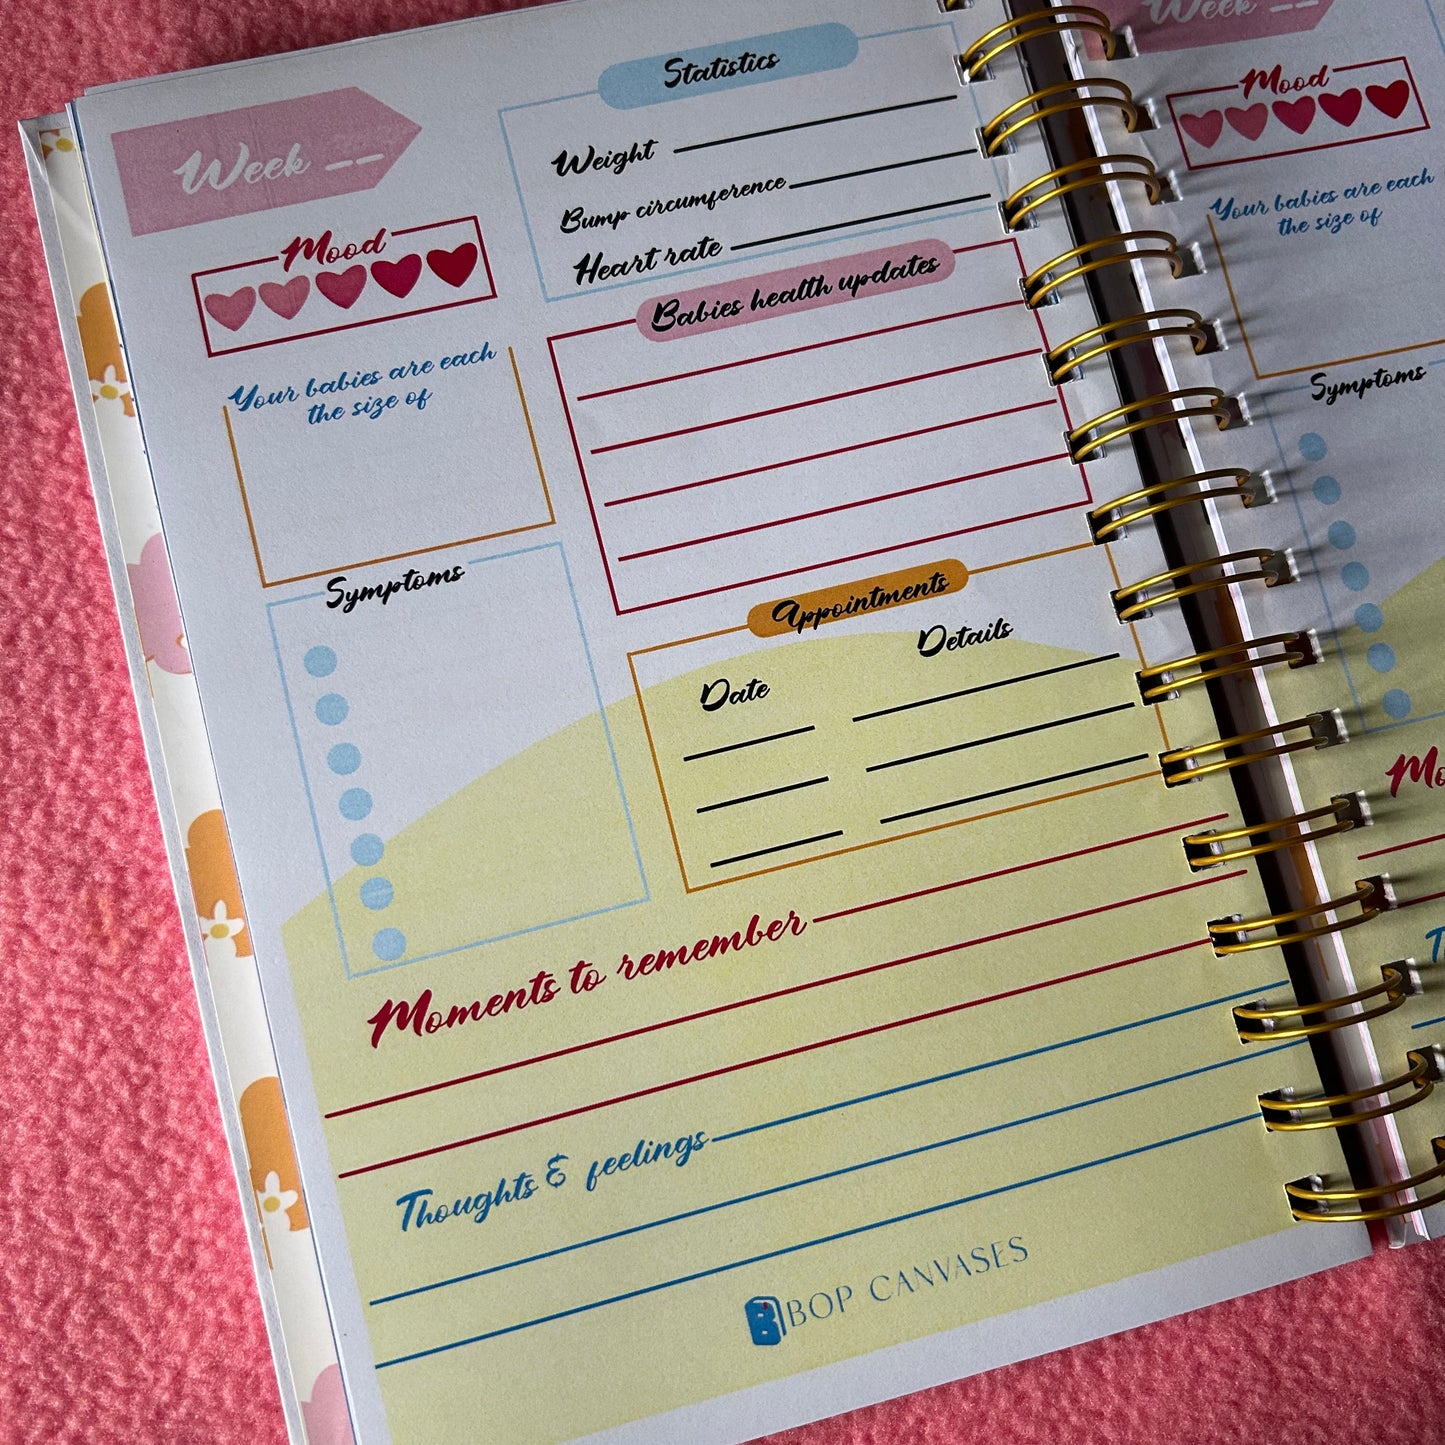 Week __
Mood
Your babies are each
the size of
Symptoms
Statistics
Weight
Bump circumference
Heart rate
Babies health updates
Appointments
Date
Details
Moments to remember
Thoughts & feelings
BOP CANVASES
Week __
Mood
Your babies are each
the size of
Symptoms